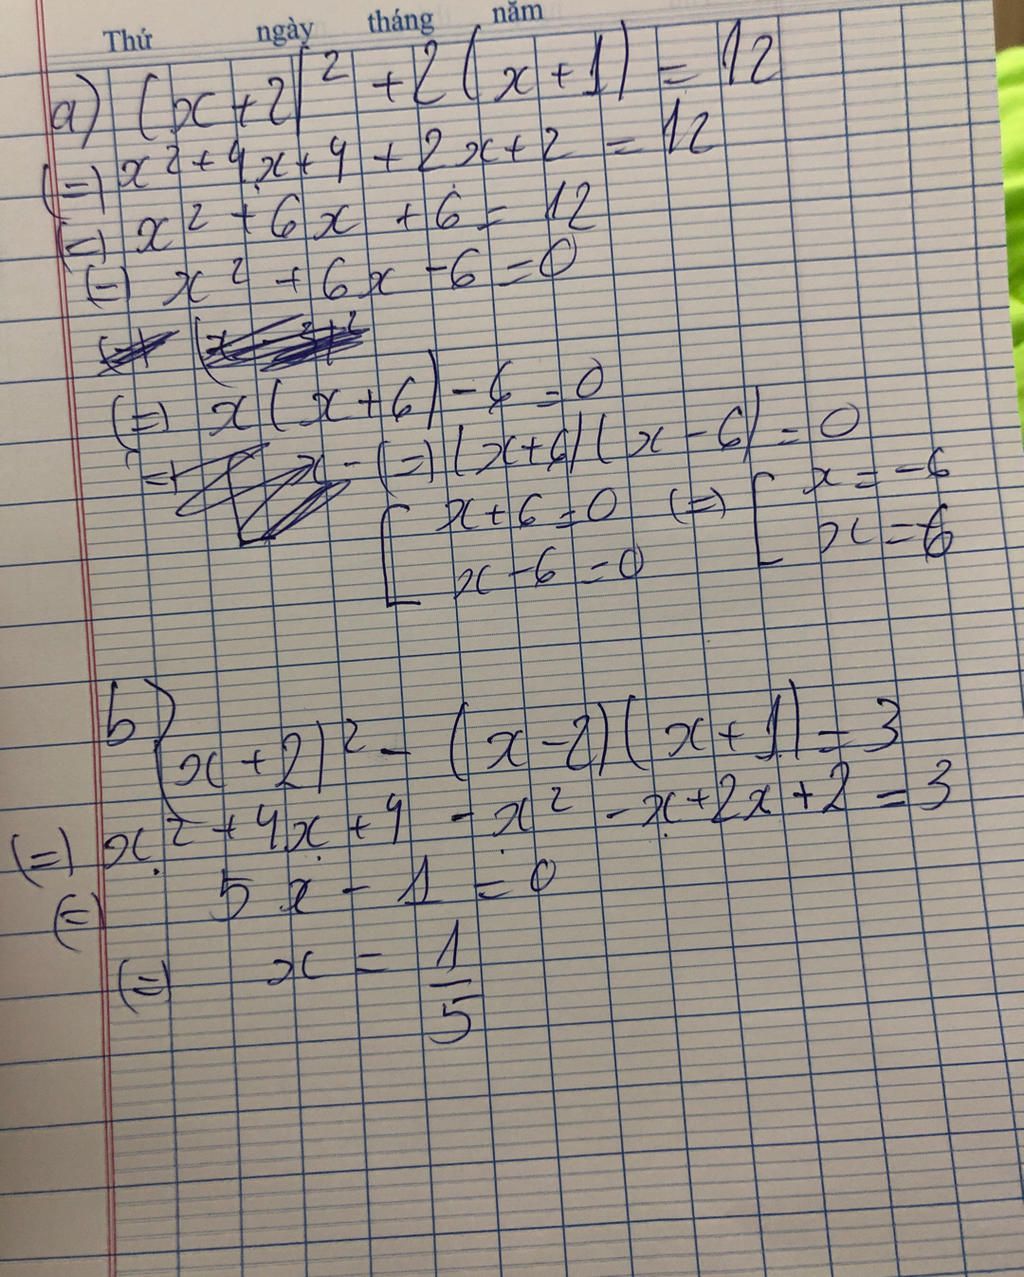 Thứ ngày tháng năm
a) (x+2)² + 2(x+1) = 12
(=) x² + 4x + 4 + 2x + 2 = 12
(=) x² + 6x + 6 = 12
(=) x² + 6x - 6 = 0
(=) x(x+6) - 6 = 0
(=) (x+6)(x-6) = 0
[ x+6=0 (=) [ x = -6
x-6=0 x = 6
b) (x+2)² - (x-2)(x+1) = 3
(=) x² + 4x + 4 - x² - x + 2x + 2 = 3
(=) 5x - 1 = 0
(=) x = 1/5